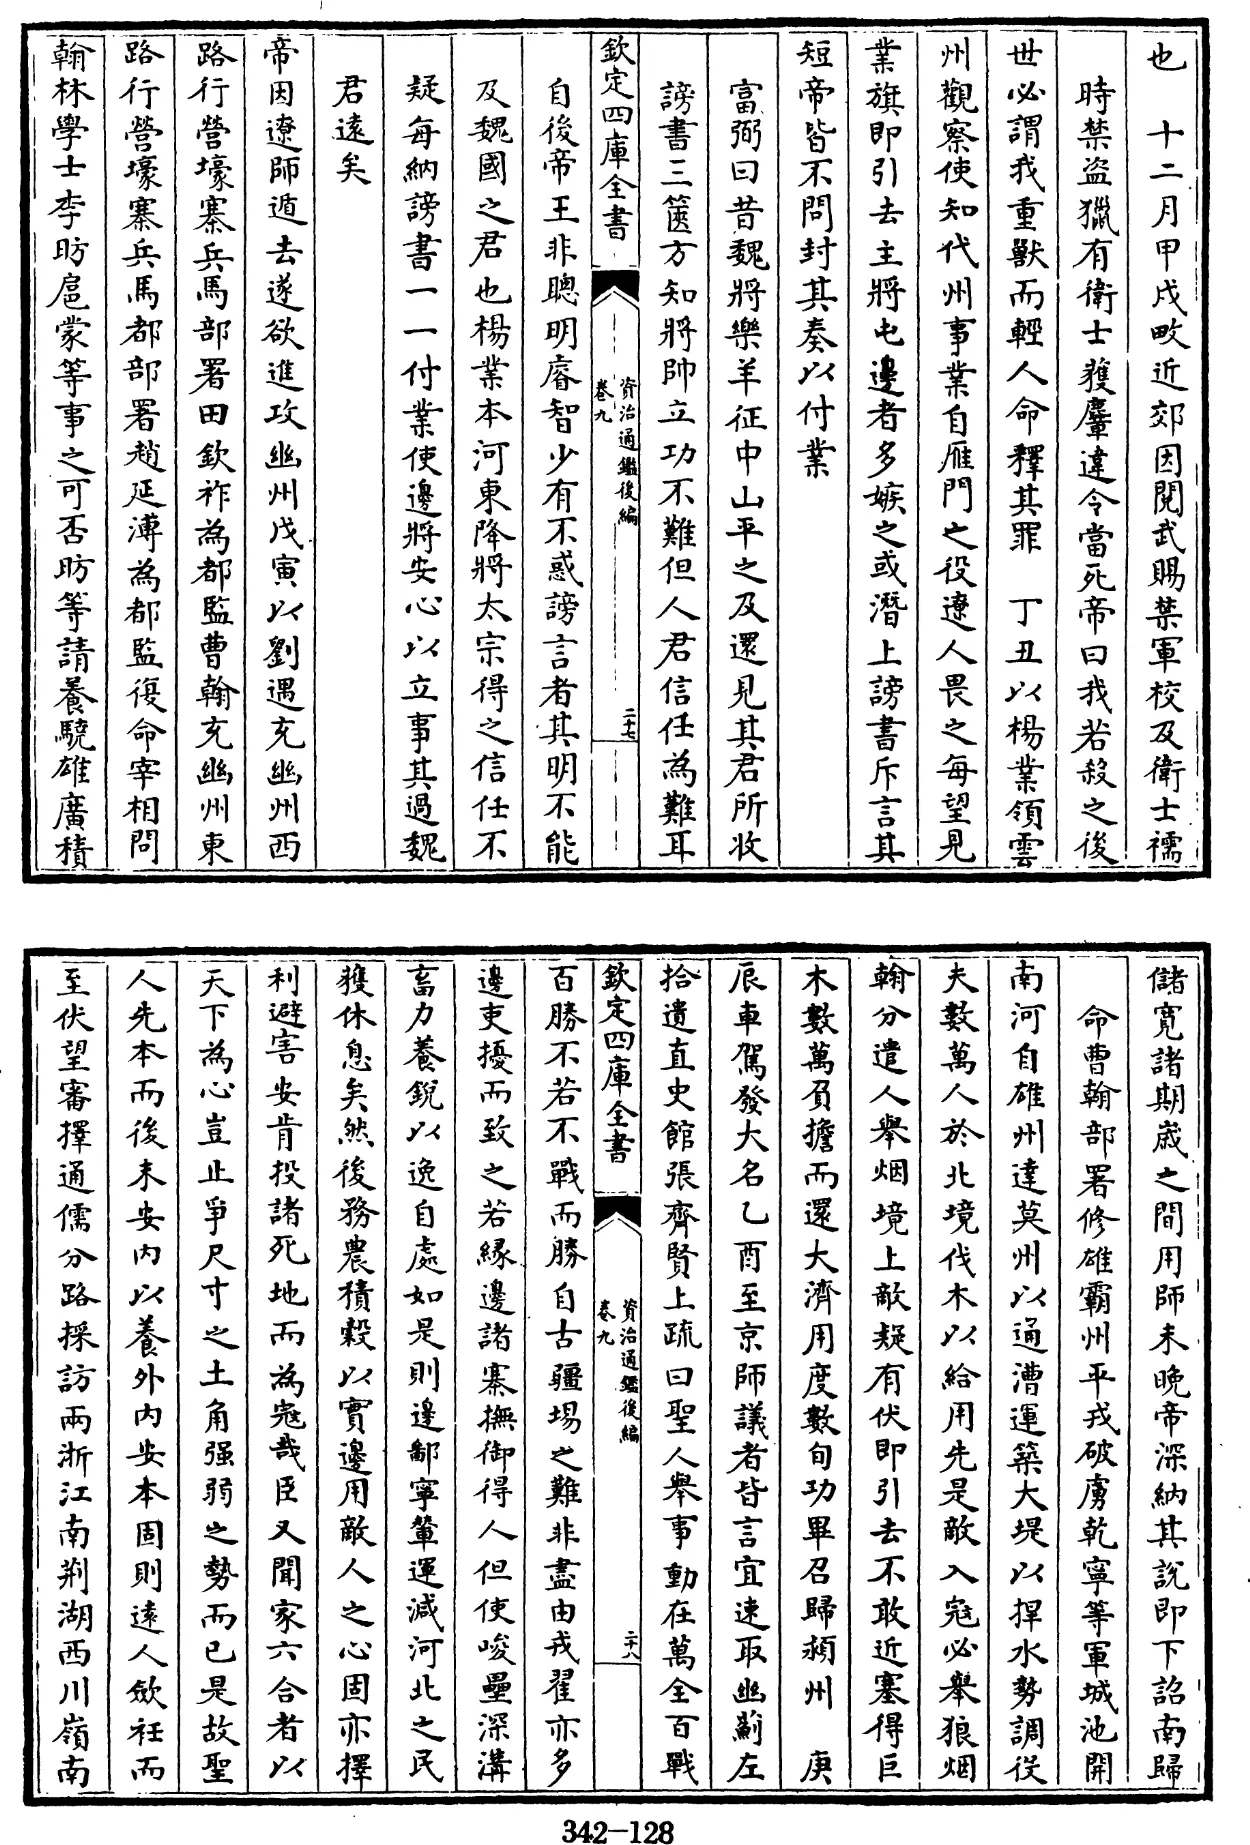 也　十二月甲戌畋近郊因閱武賜禁軍校及衛士襦
時禁盜獵有衛士獲麞違令當死帝曰我若殺之後
世必謂我重獸而輕人命釋其罪　丁丑以楊業領雲
州觀察使知代州事業自雁門之役遼人畏之每望見
業旗即引去主將屯邊者多嫉之或潛上謗書斥言其
短帝皆不問封其奏以付業
富弼曰昔魏將樂羊征中山平之及還見其君所收
謗書三篋方知將帥立功不難但人君信任為難耳
欽定四庫全書
資治通鑑後編
卷九
二十七
自後帝王非聰明睿智少有不惑謗言者其明不能
及魏國之君也楊業本河東降將太宗得之信任不
疑每納謗書一一付業使邊將安心以立事其過魏
君遠矣
帝因遼師遁去遂欲進攻幽州戊寅以劉遇充幽州西
路行營壕寨兵馬部署田欽祚為都監曹翰充幽州東
路行營壕寨兵馬都部署趙延溥為都監復命宰相問
翰林學士李昉扈蒙等事之可否昉等請養驍雄廣積
儲寬諸期歲之間用師未晚帝深納其說即下詔南歸
命曹翰部署修雄霸州平戎破虜乾寧等軍城池開
南河自雄州達莫州以通漕運築大堤以捍水勢調役
夫數萬人於北境伐木以給用先是敵入寇必舉狼烟
翰分遣人舉烟境上敵疑有伏即引去不敢近塞得巨
木數萬負擔而還大濟用度數旬功畢召歸潁州　庚
辰車駕發大名乙酉至京師議者皆言宜速取幽薊左
拾遺直史館張齊賢上疏曰聖人舉事動在萬全百戰
欽定四庫全書
資治通鑑後編
卷九
二十八
百勝不若不戰而勝自古疆場之難非盡由戎翟亦多
邊吏擾而致之若緣邊諸寨撫御得人但使峻壘深溝
畜力養銳以逸自處如是則邊鄙寧輦運減河北之民
獲休息矣然後務農積穀以實邊用敵人之心固亦擇
利避害安肯投諸死地而為寇哉臣又聞家六合者以
天下為心豈止爭尺寸之土角强弱之勢而已是故聖
人先本而後末安內以養外內安本固則遠人歛衽而
至伏望審擇通儒分路採訪兩浙江南荆湖西川嶺南
342-128